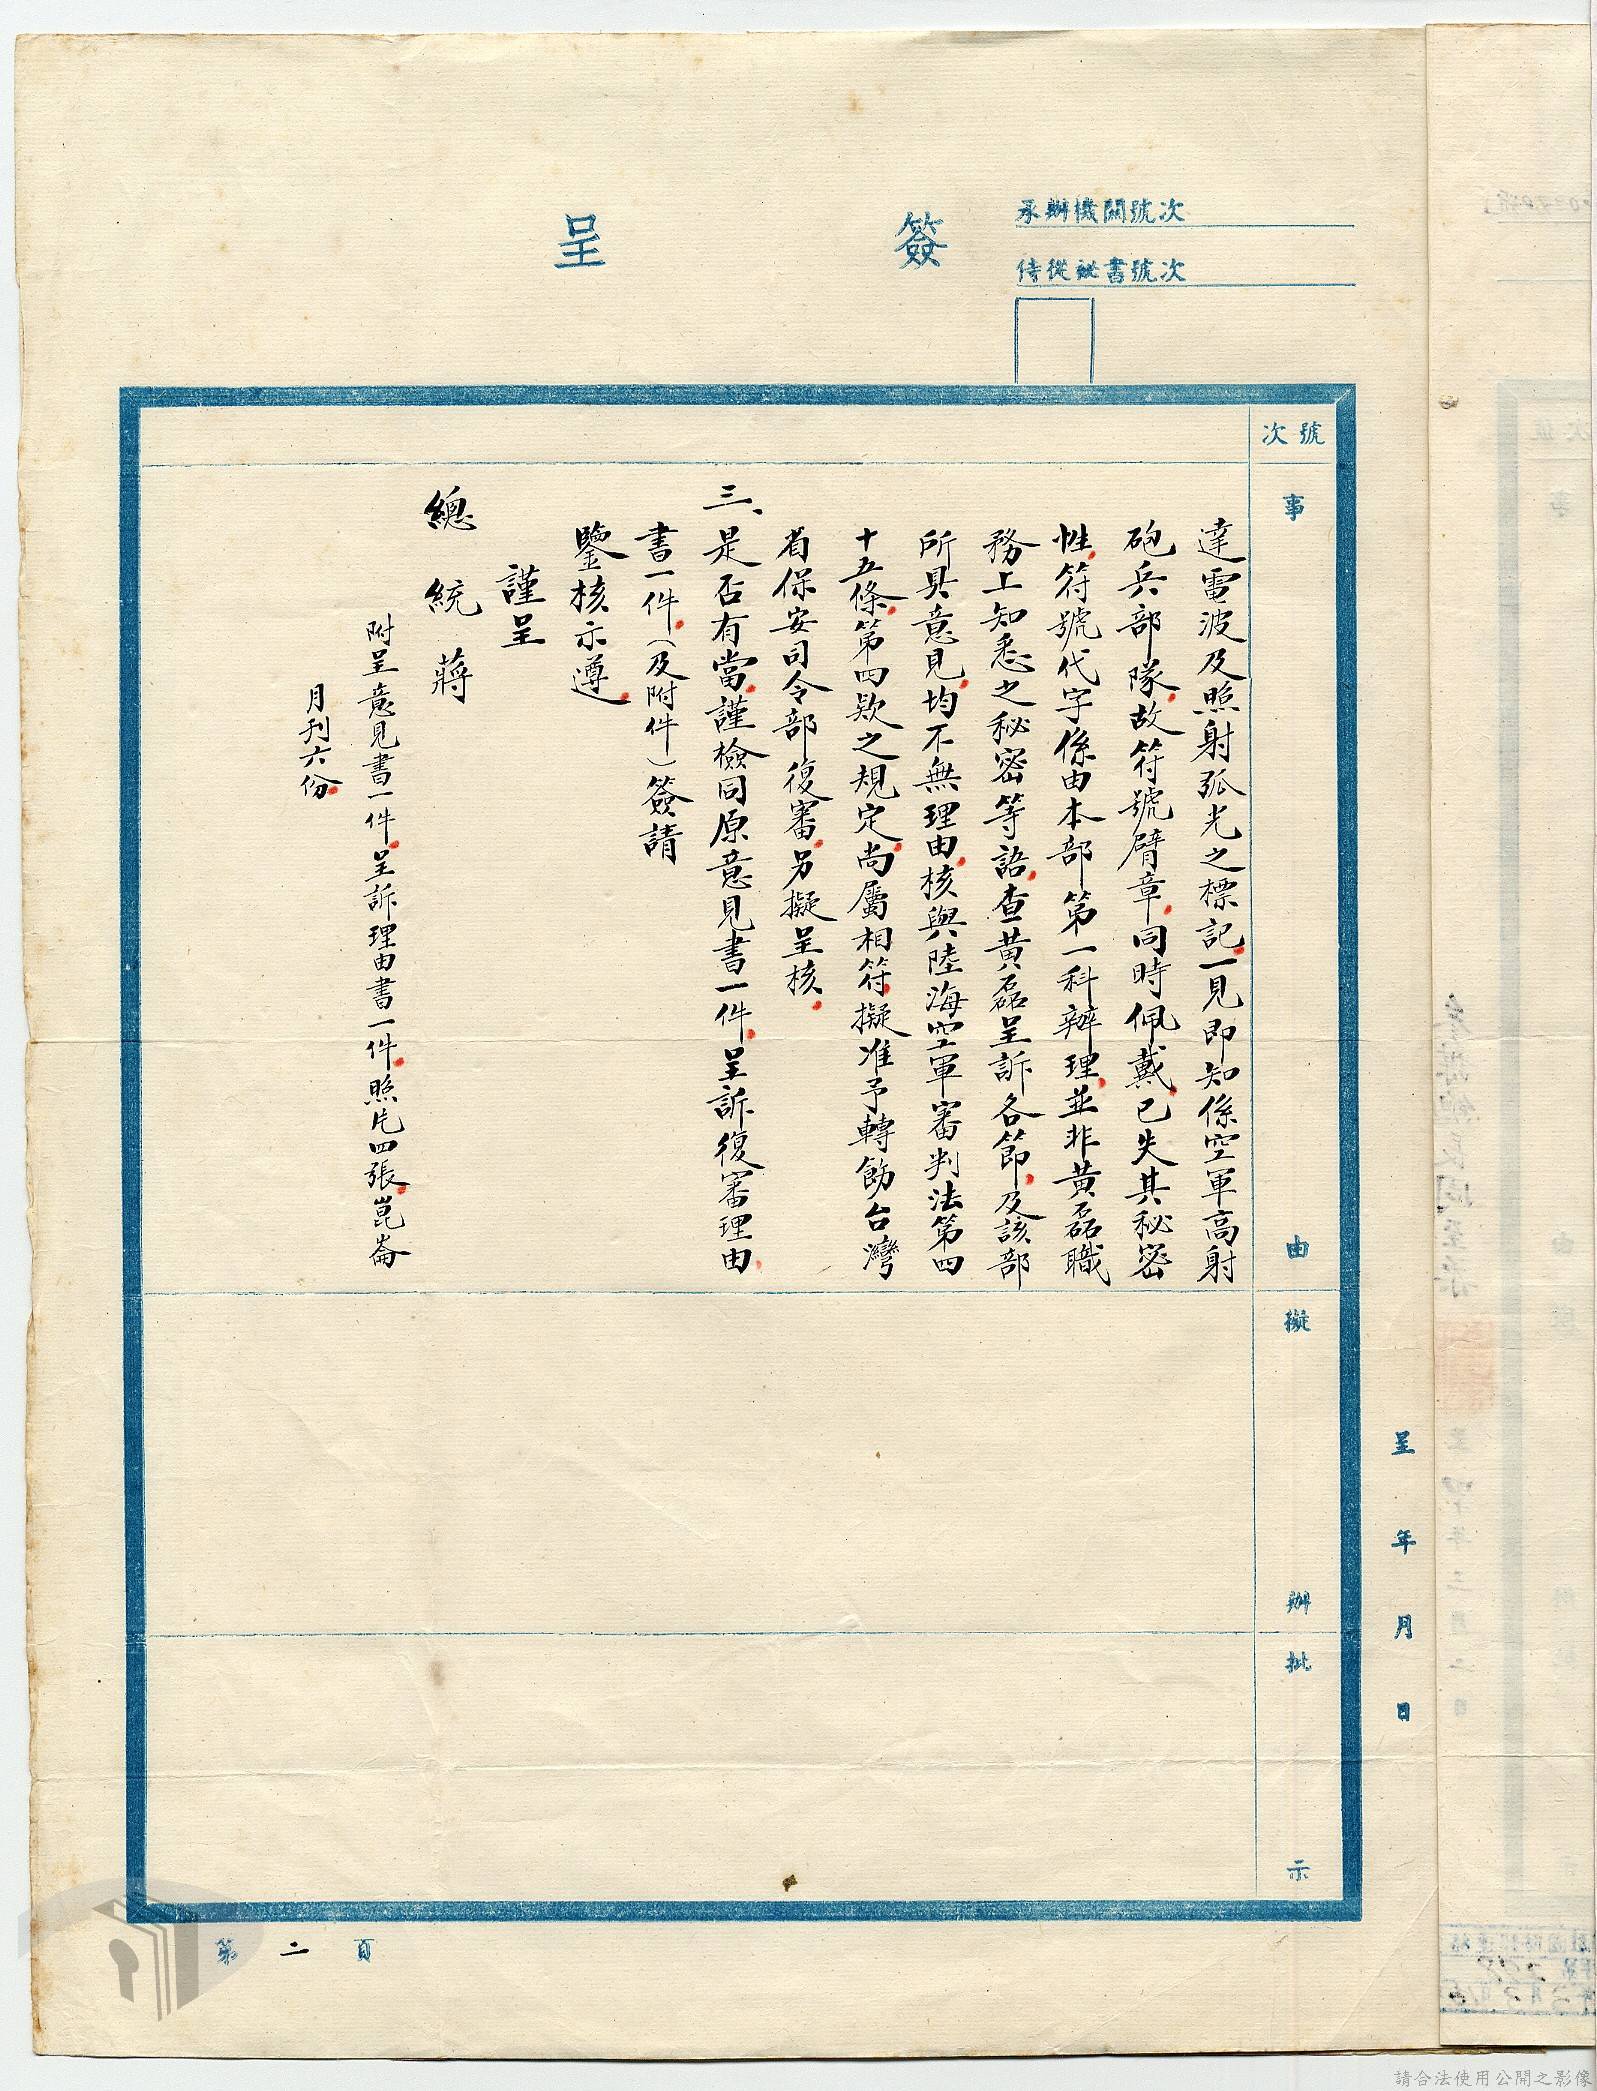 簽呈
承辦機關號次
侍從祕書號次
號次
事由
擬辦
批示
呈 年 月 日
達電波及照射弧光之標記,一見即知係空軍高射
砲兵部隊,故符號臂章,同時佩戴,已失其秘密
性,符號代字係由本部第一科辦理,並非黃磊職
務上知悉之秘密等語,查黃磊呈訴各節,及該部
所具意見,均不無理由,核與陸海空軍審判法第四
十五條,第四欵之規定,尚屬相符,擬准予轉飭台灣
省保安司令部復審,另擬呈核,
三、是否有當,謹檢同原意見書一件,呈訴復審理由
書一件,(及附件)簽請
鑒核示遵,
謹呈
總統 蔣
附呈意見書一件,呈訴理由書一件,照片四張,崑崙
月刊六份,
第二頁
請合法使用公開之影像